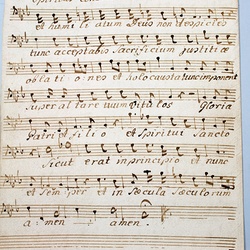 et humiliatum Deus non despicies
tunc acceptabis Sacrificium justitiæ
oblationes et holocausta tunc imponent
super altare tuum vitulos Gloria
Patri et filio et Spiritui Sancto
Sicut erat in principio et nunc
et semper et in Sæcula Sæculorum
amen amen.